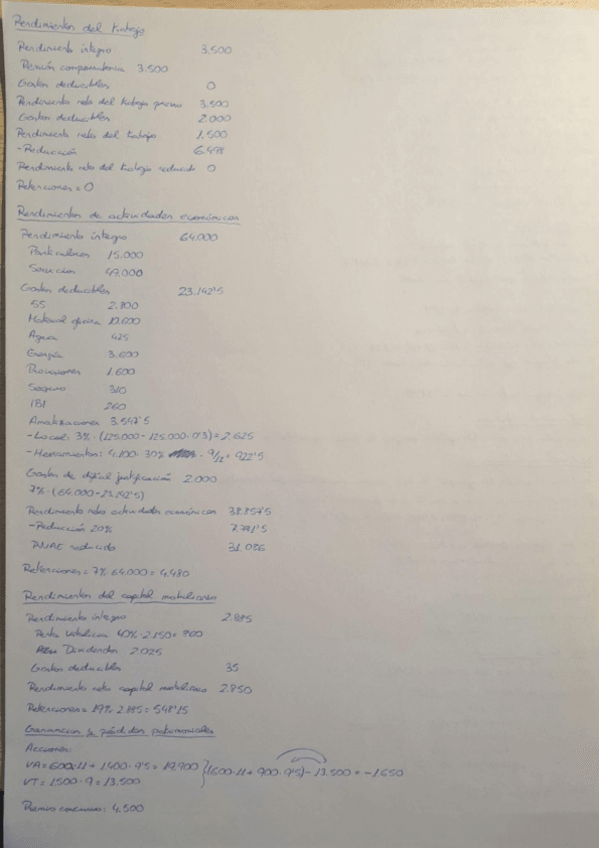 Rendimientos del trabajo
Rendimiento íntegro 3.500
Pensión compensatoria 3.500
Gastos deducibles 0
Rendimiento neto del trabajo previo 3.500
Gastos deducibles 2.000
Rendimiento neto del trabajo 1.500
-Reducción 6.498
Rendimiento neto del trabajo reducido 0
Retenciones = 0
Rendimientos de actividades económicas
Rendimiento íntegro 64.000
Particulares 15.000
Servicios 49.000
Gastos deducibles 23.142'5
SS 2.800
Material oficina 10.600
Agua 425
Energía 3.600
Provisiones 1.600
Seguro 310
IBI 260
Amortizaciones 3.547'5
-Local: 3% · (125.000 - 125.000 · 0'3) = 2.625
-Herramientas: 4.100 · 30% · 9/12 = 922'5
Gastos de difícil justificación 2.000
7% · (64.000 - 23.142'5)
Rendimiento neto actividades económicas 38.857'5
-Reducción 20% 7.771'5
RNAE reducido 31.086
Retenciones = 7% 64.000 = 4.480
Rendimientos del capital mobiliario
Rendimiento íntegro 2.885
Renta vitalicia 40% · 2.150 = 860
Dividendos 2.025
Gastos deducibles 35
Rendimiento neto capital mobiliario 2.850
Retenciones = 19% 2.885 = 548'15
Ganancias y pérdidas patrimoniales
Acciones:
VA = 600 · 11 + 1400 · 9'5 = 19.900 } (600 · 11 + 900 · 9'5) - 13.500 = -1.650
VT = 1500 · 9 = 13.500
Premio concurso: 4.500